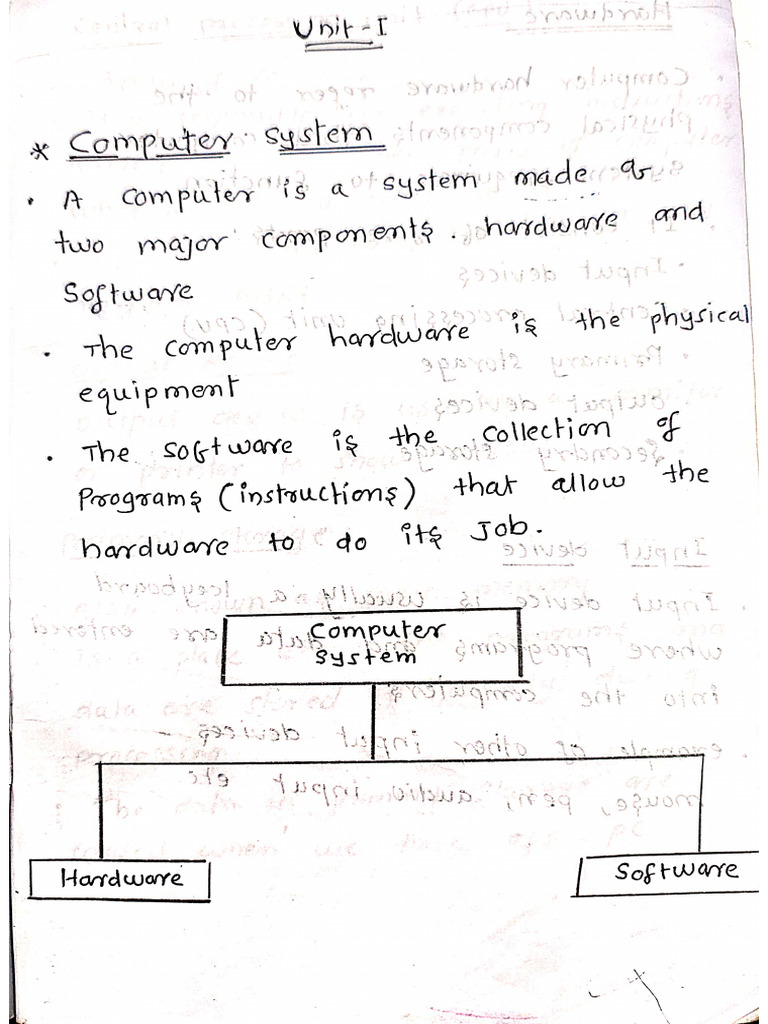 Unit - I
* Computer system
• A computer is a system made of
two major components. hardware and
Software
• The computer hardware is the physical
equipment
• The software is the collection of
Programs (instructions) that allow the
hardware to do its Job.
Computer
system
Hardware
Software